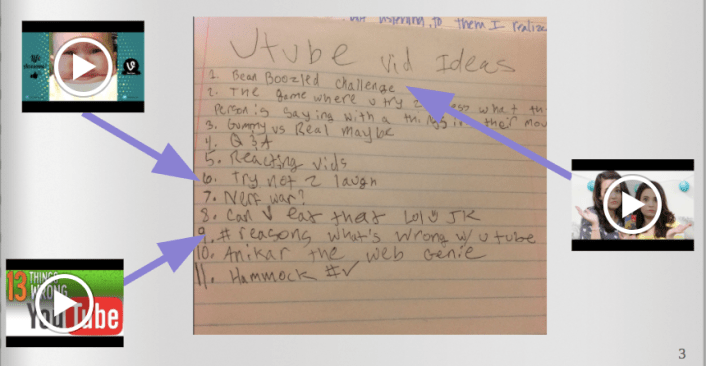 listening to them I realize
Utube Vid Ideas
1. Bean Boozled challenge
2. The game where u try 2 guess what th
Person is saying with a thing in their mou
3. Gummy vs Real maybe
4. Q & A
5. Reacting vids
6. Try not 2 laugh
7. Nerf war?
8. Can U eat that Lol JK
9. # reasons what's wrong w/ utube
10. Anikar the web Genie
11. Hammock #✓
13 THINGS
WRONG
YouTube
3